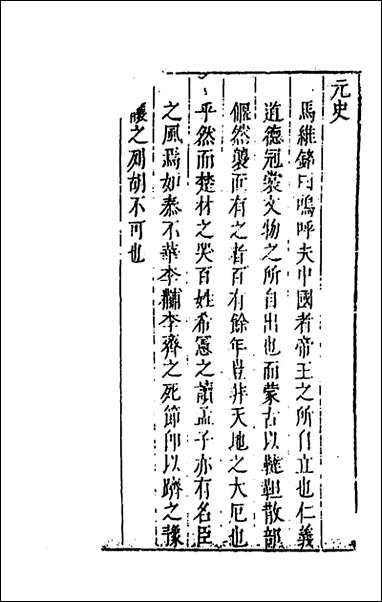 元史
馬維銘曰嗚呼夫中國者帝王之所自立也仁義
道德冠裳文物之所自出也而蒙古以韃靼散部
偃然襲而有之者百有餘年豈非天地之大厄也
乎然而楚材之哭百姓希憲之讀孟子亦有名臣
之風焉如泰不華李黼李齊之死節卽以躋之豫
讓之列胡不可也